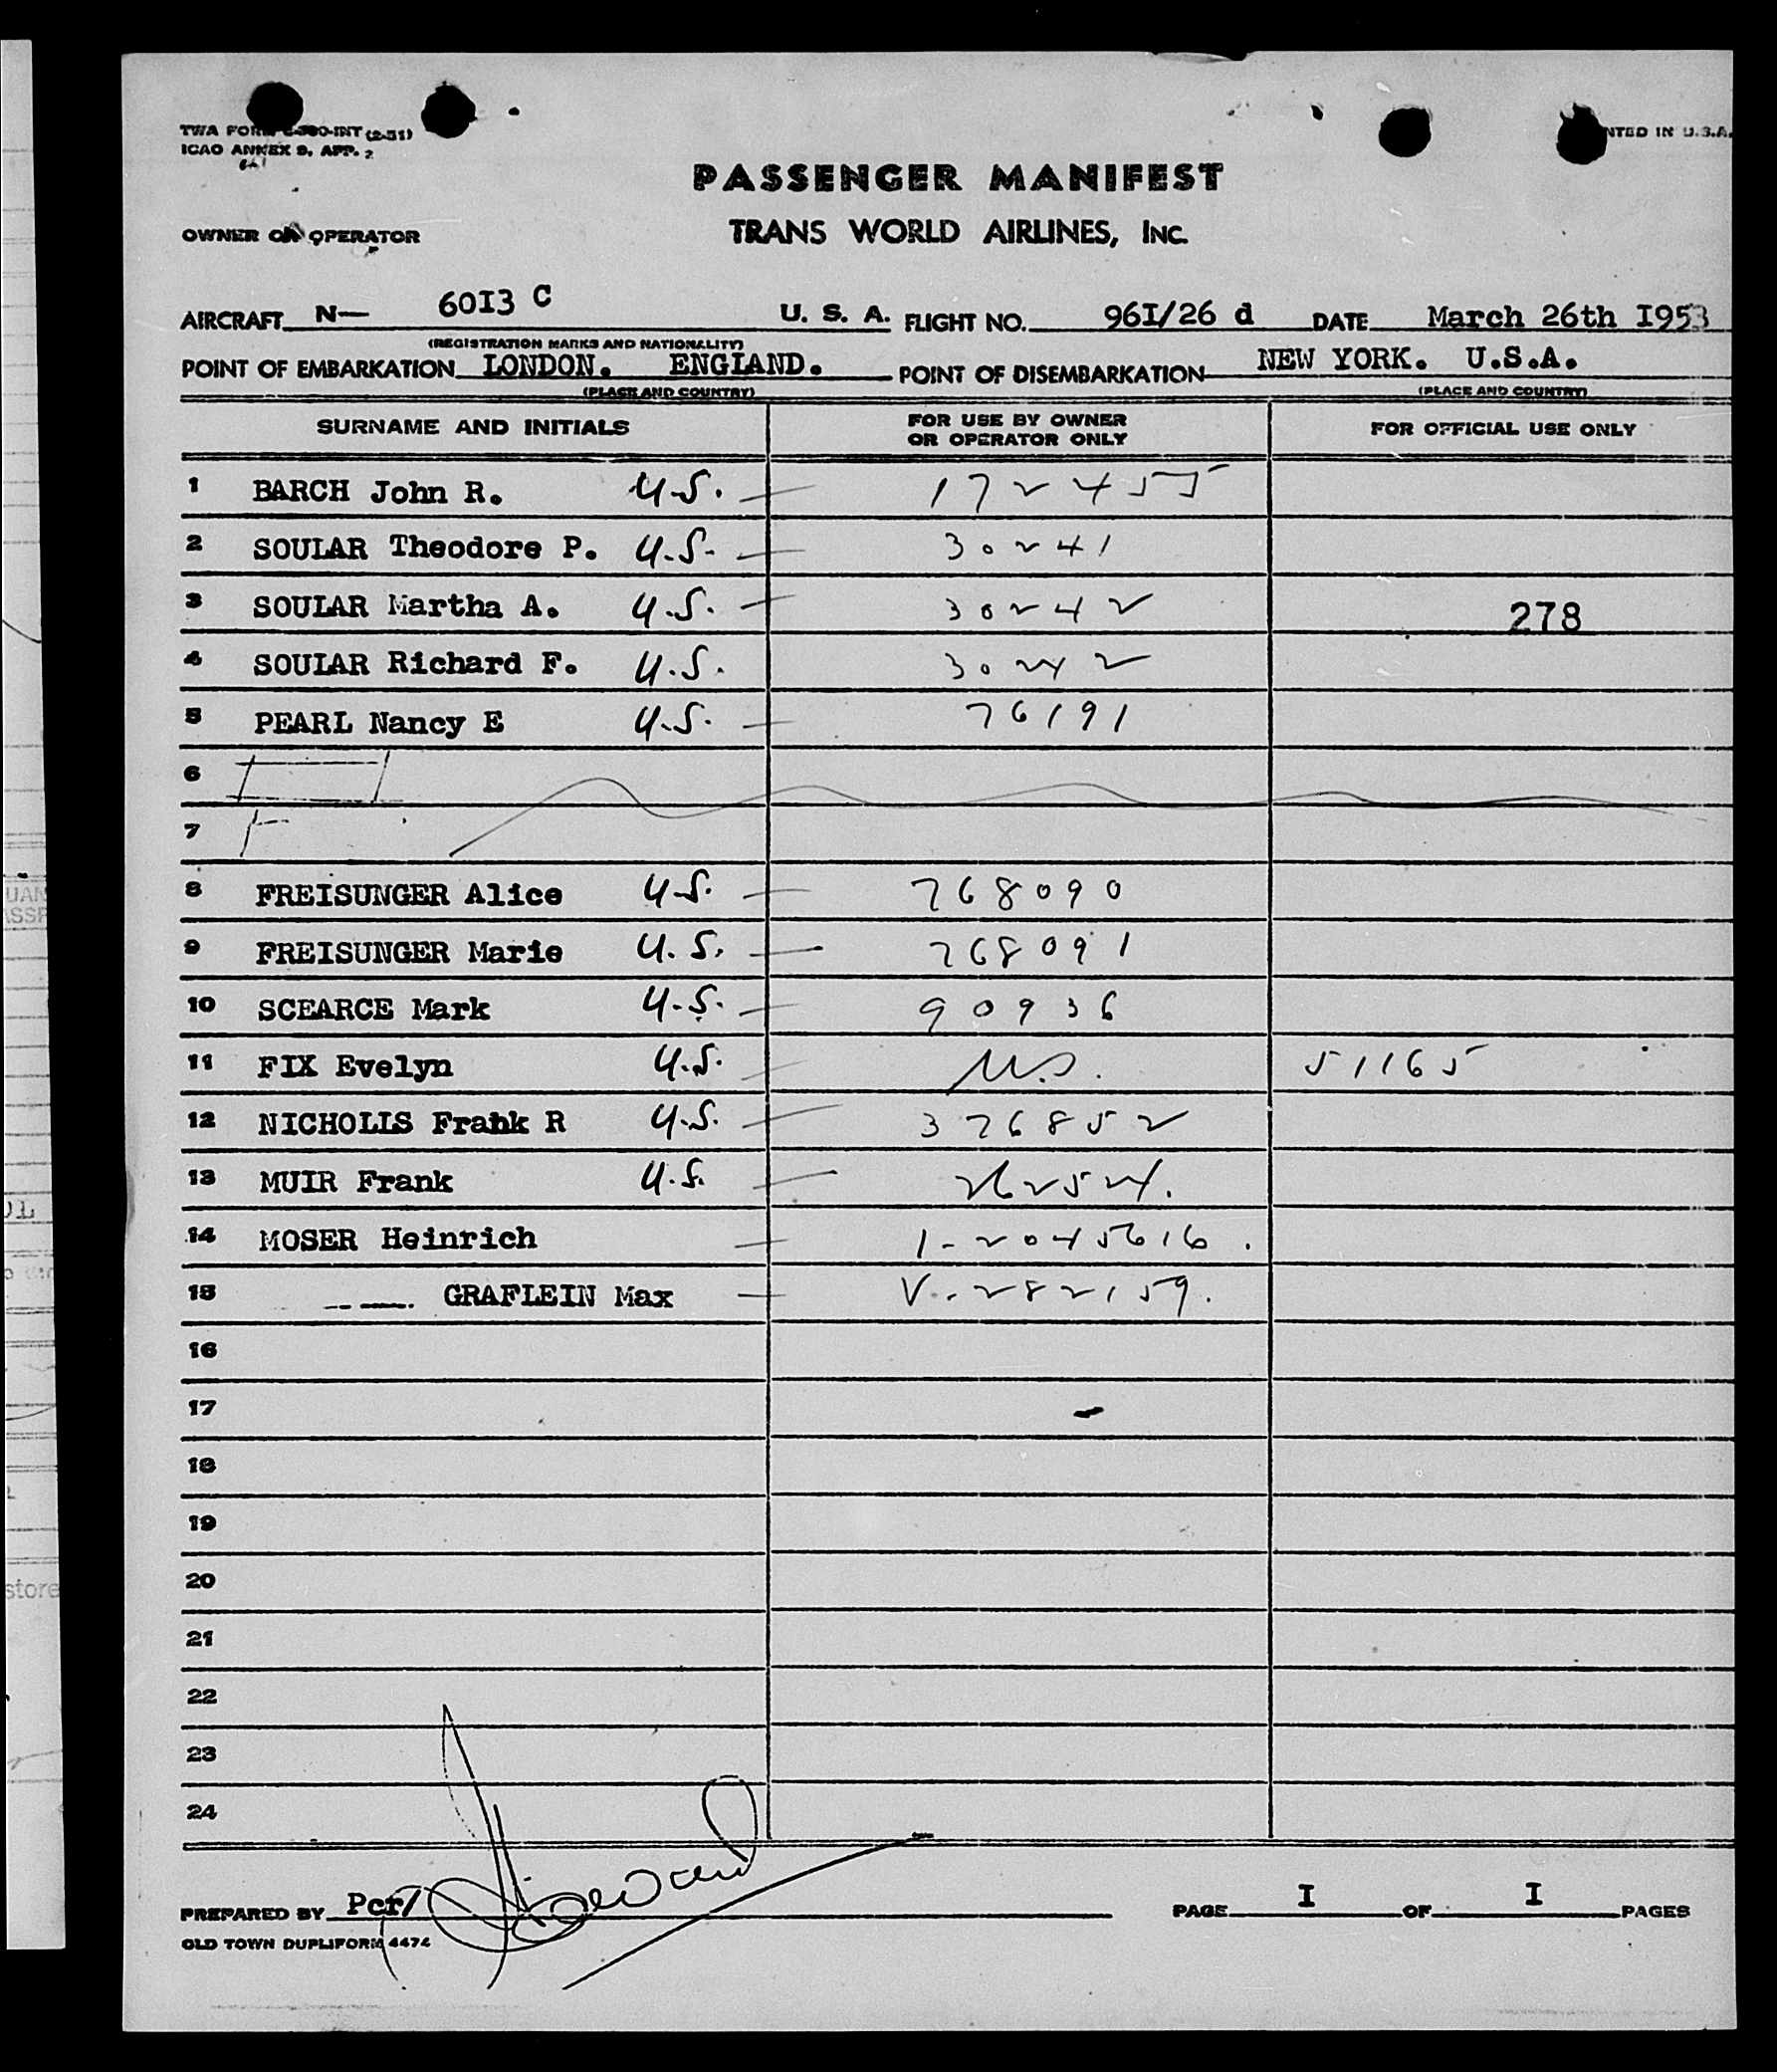 TWA FORM (2-51)
ICAO ANNEX 9, APP. 2
NTED IN U.S.A.
PASSENGER MANIFEST
OWNER OR OPERATOR
TRANS WORLD AIRLINES, INC.
AIRCRAFT N— 60I3 C U. S. A. FLIGHT NO. 96I/26 d DATE March 26th I953
(REGISTRATION MARKS AND NATIONALITY)
POINT OF EMBARKATION LONDON. ENGLAND. POINT OF DISEMBARKATION NEW YORK. U.S.A.
(PLACE AND COUNTRY) (PLACE AND COUNTRY)
SURNAME AND INITIALS FOR USE BY OWNER OR OPERATOR ONLY FOR OFFICIAL USE ONLY
1 BARCH John R. U.S. — 172455
2 SOULAR Theodore P. U.S. — 30241
3 SOULAR Martha A. U.S. — 30242 278
4 SOULAR Richard F. U.S. 30242
5 PEARL Nancy E U.S. — 76191
6
7
8 FREISUNGER Alice U.S. — 768090
9 FREISUNGER Marie U.S. — 768091
10 SCEARCE Mark U.S. — 90936
11 FIX Evelyn U.S. — 51165
12 NICHOLLS Frank R U.S. — 376852
13 MUIR Frank U.S. — 26254.
14 MOSER Heinrich — 1-2045616.
15 GRAFLEIN Max — V-282159.
16
17
18
19
20
21
22
23
24
PREPARED BY Per/ PAGE I OF I PAGES
OLD TOWN DUPLIFORM 4474